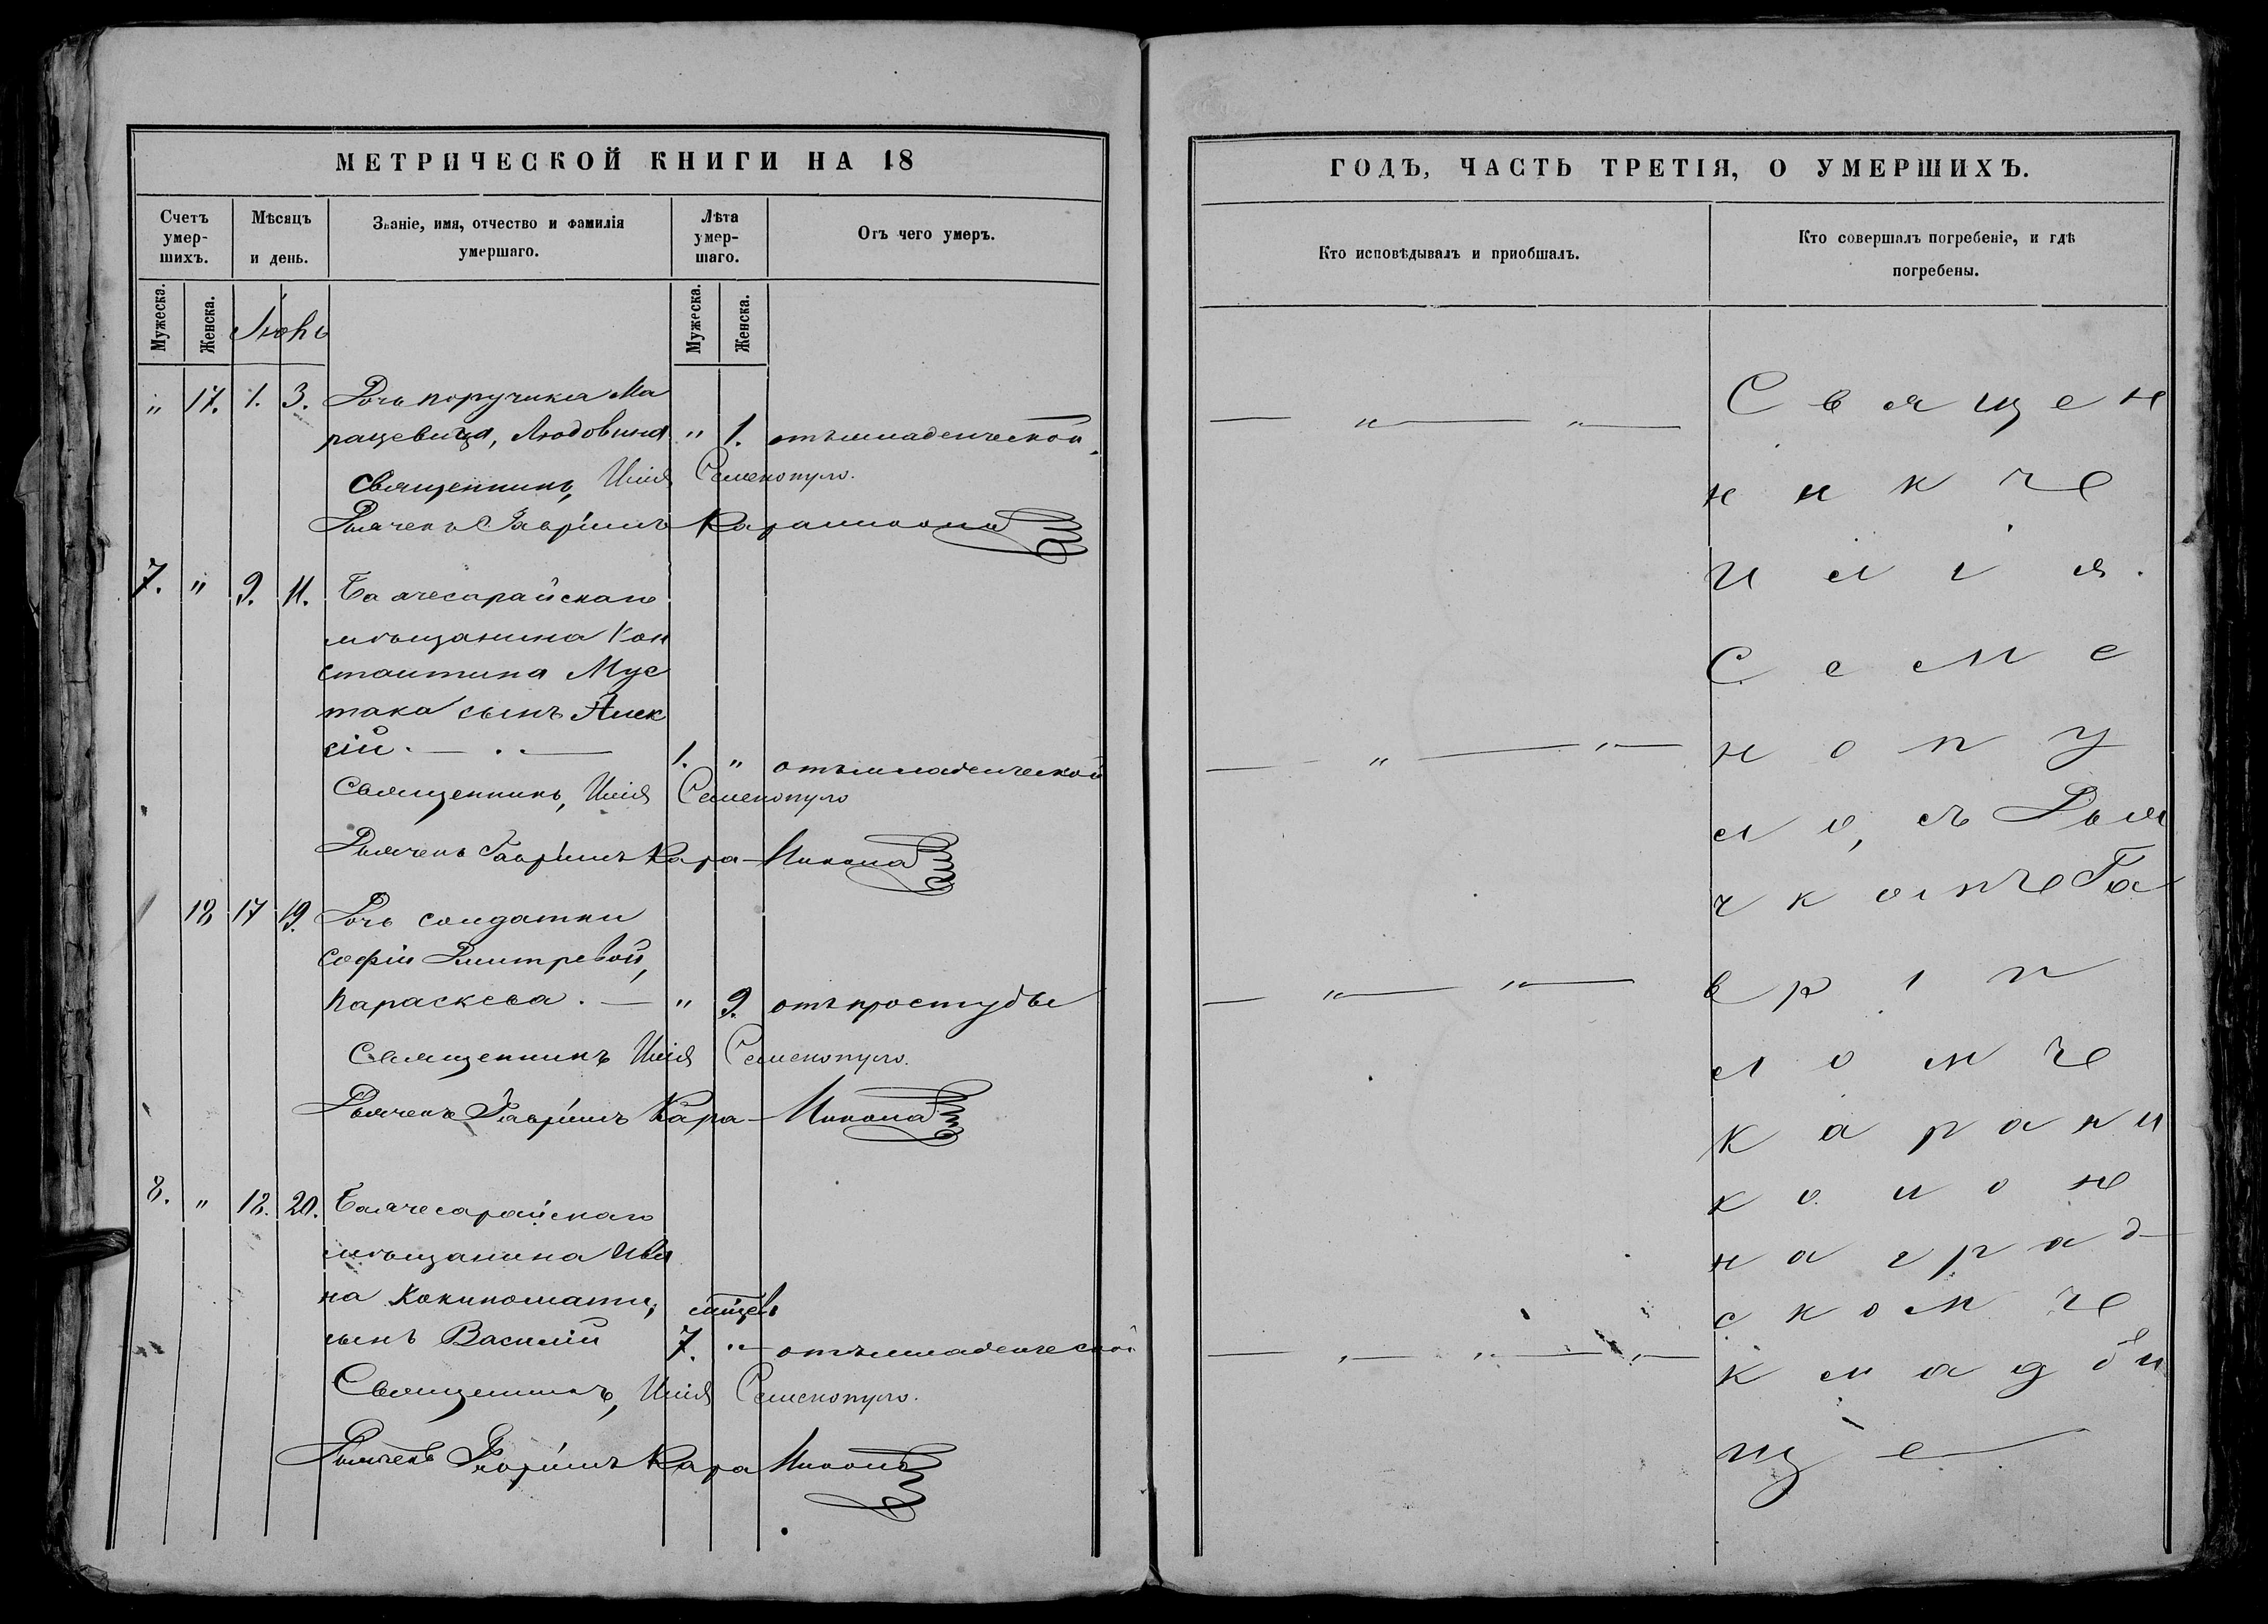 МЕТРИЧЕСКОЙ КНИГИ НА 18
Счетъ умер-шихъ.
Мѣсяцъ и день.
Званіе, имя, отчество и фамилія
умершаго.
Лѣта умер-шаго.
Отъ чего умеръ.
Мужеска.
Женска.
Іюнь
Мужеска.
Женска.
" 17. 1. 3. Дочь поручика Ма
рацевича, Людовика " 1. отъ младенческой
Священникъ, Илія Семенопуло.
Дьячекъ Гавріилъ Караникола
7. " 9. 11. Бахчесарайскаго
мѣщанина Кон
стантина Мус
така сынъ Алек
сій. 1. " отъ младенческой
Священникъ, Илія Семенопуло
Дьячекъ Гавріилъ Кара-Никола
18 17 19. Дочь солдатки
Софіи Дмитревой,
Параскева. " 9. отъ простуды
Священникъ Илія Семенопуло.
Дьячекъ Гавріилъ Кара-Никола
8. " 18. 20. Бахчесарайскаго
мѣщанина Ива
на Кокинопати,
сынъ Василій
мѣсяцевъ
7. " отъ младенческой
Священникъ, Илія Семенопуло.
Дьячекъ Гавріилъ Кара Никола
ГОДЪ, ЧАСТЬ ТРЕТІЯ, О УМЕРШИХЪ.
Кто исповѣдывалъ и пріобщалъ.
Кто совершалъ погребеніе, и гдѣ
погребены.
Священ
никъ
Илія
Семе
нопу
ло, съ Дья
чкомъ Га
вріи
ломъ
Карани
колой
на град
скомъ
кладби
ще